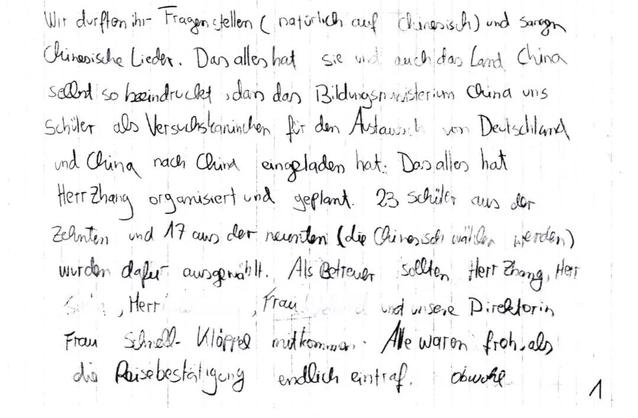 Wir durften ihr Fragen stellen (natürlich auf Chinesisch) und sangen
Chinesische Lieder. Das alles hat sie und auch das Land China
selbst so beeindruckt, dass das Bildungsministerium China uns
Schüler als Versuchskaninchen für den Austausch von Deutschland
und China nach China eingeladen hat. Das alles hat
Herr Zhang organisiert und geplant. 23 Schüler aus der
Zehnten und 17 aus der neunten (die Chinesisch wählen werden)
wurden dafür ausgewählt. Als Betreuer sollten Herr Zhang, Herr
, Herr , Frau und unsere Direktorin
Frau Schnell-Klöppel mitkommen. Alle waren froh, als
die Reisebestätigung endlich eintraf. obwohl
1